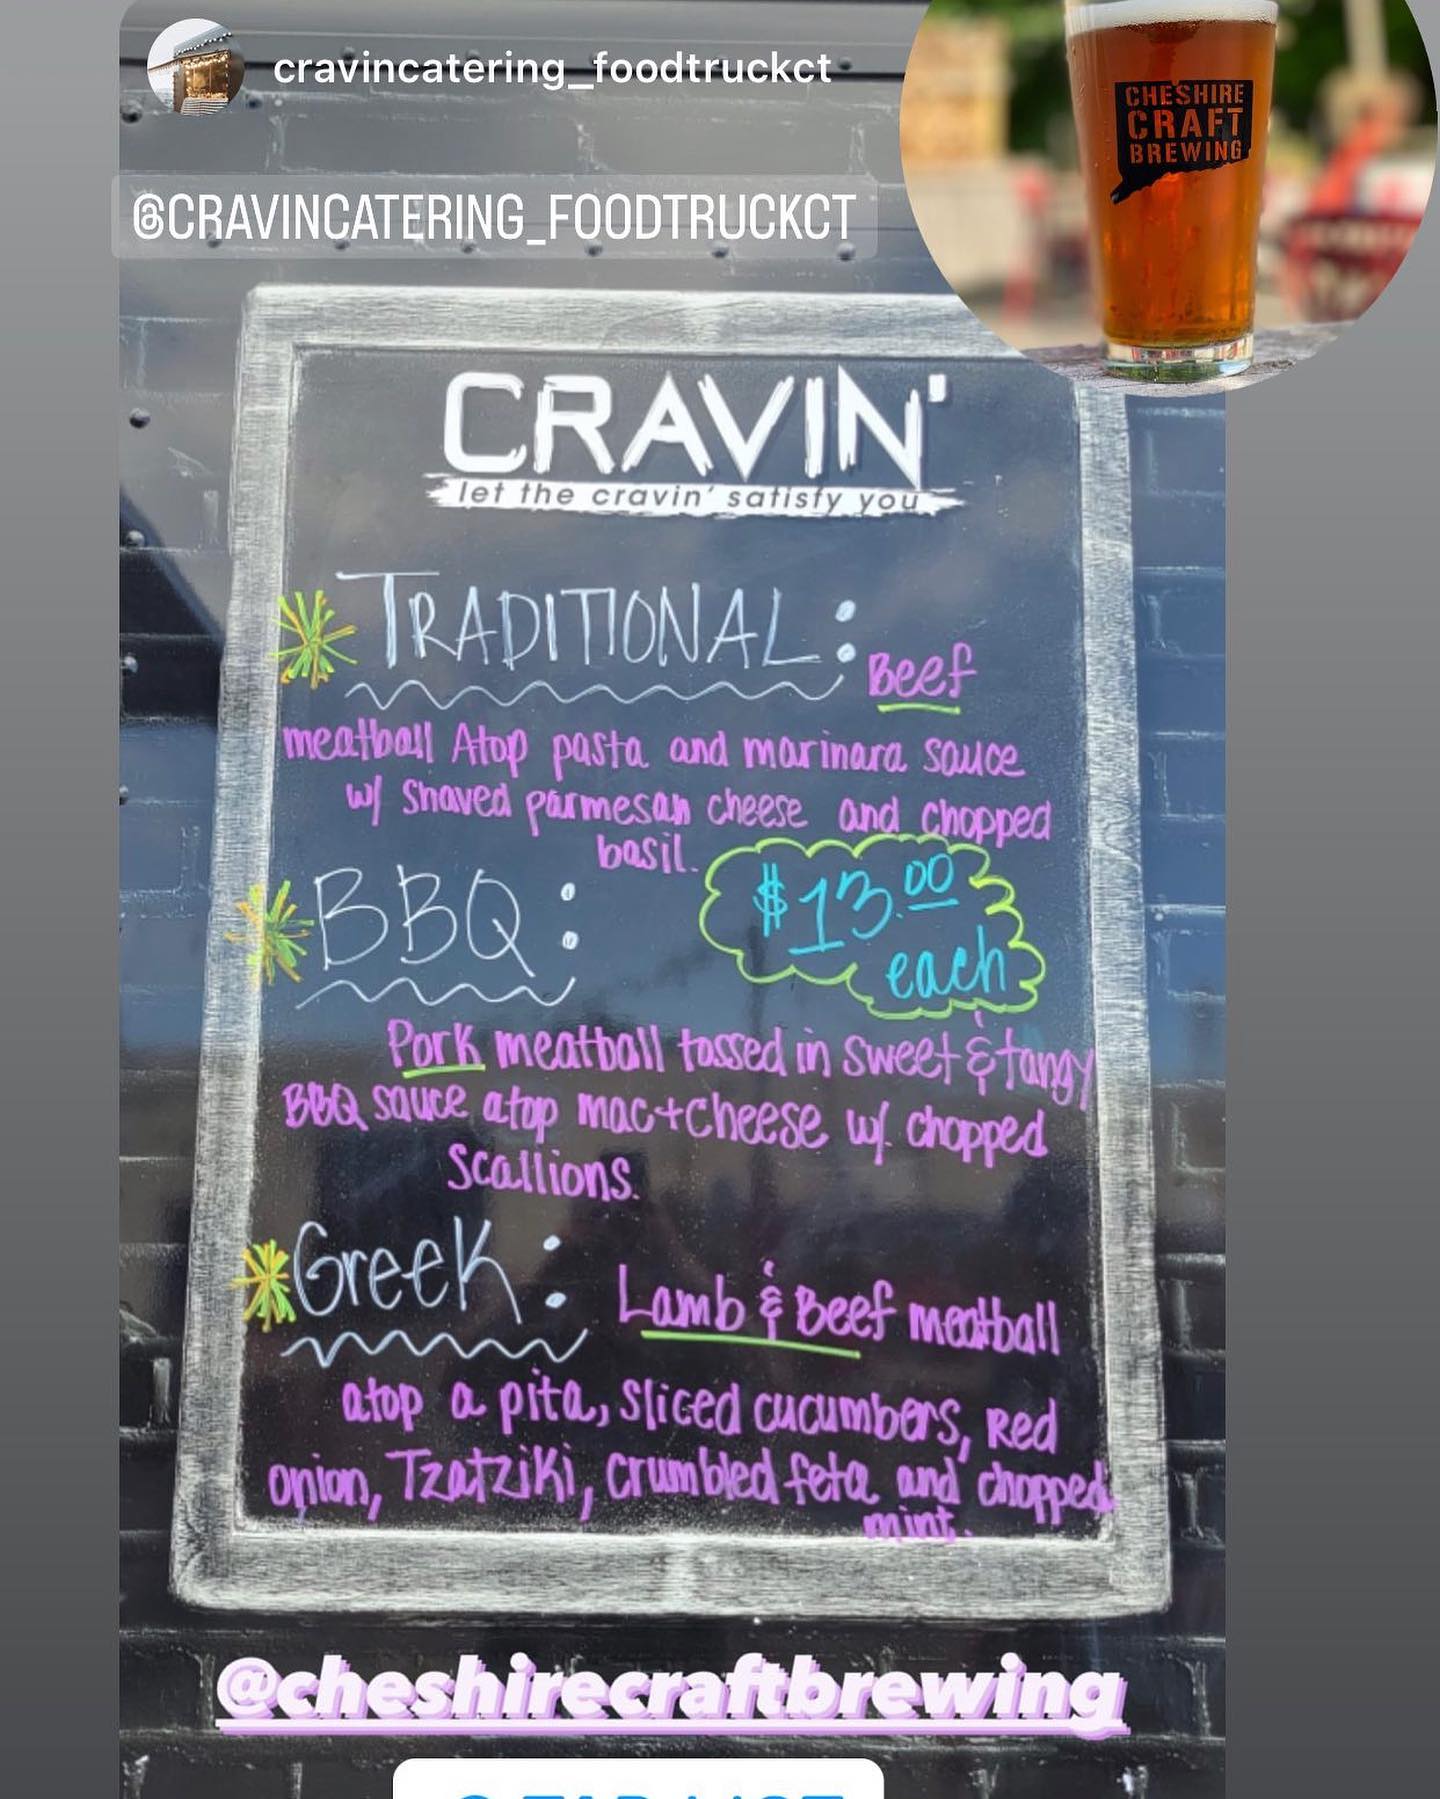 cravincatering_foodtruckct
CHESHIRE
CRAFT
BREWING
@CRAVINCATERING_FOODTRUCKCT
CRAVIN'
let the cravin' satisfy you
TRADITIONAL:
Beef
meatball Atop pasta and marinara sauce
w/ Shaved parmesan cheese and chopped
basil.
$13.00
each
BBQ:
Pork meatball tossed in sweet & tangy
BBQ sauce atop mac+cheese w/ chopped
Scallions.
Greek: Lamb & Beef meatball
atop a pita, sliced cucumbers, Red
onion, Tzatziki, crumbled feta and chopped
mint.
@cheshirecraftbrewing